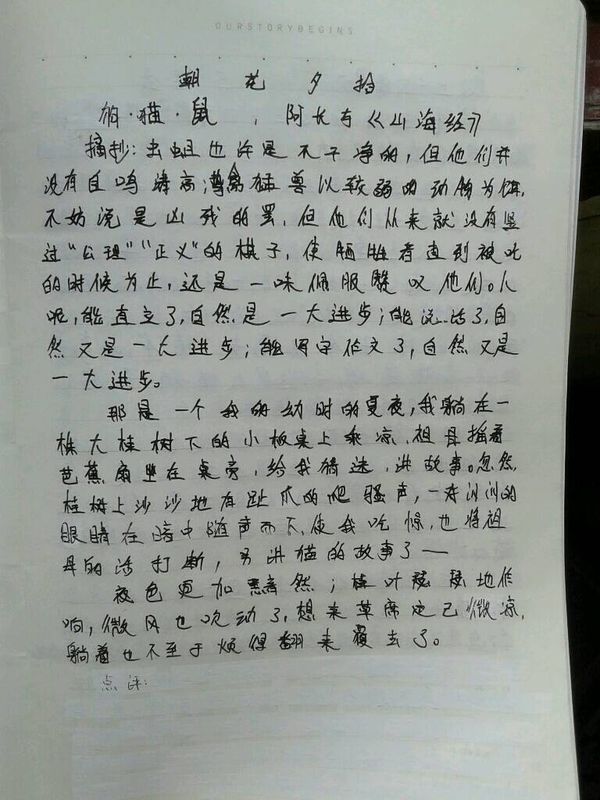 OURSTORYBEGINS
朝花夕拾
狗·猫·鼠，阿长与《山海经》
摘抄：虫蛆也许是不干净的，但他们并
没有自鸣清高；鸷禽猛兽以较弱的动物为饵，
不妨说是凶残的罢，但他们从来就没有竖
过“公理”“正义”的棋子，使牺牲者直到被吃
的时候为止，还是一味佩服赞叹他们。人
呢，能直立了，自然是一大进步；能说话了，自
然又是一大进步；能写字作文了，自然又是
一大进步。
那是一个我的幼时的夏夜，我躺在一
株大桂树下的小板桌上乘凉，祖母摇着
芭蕉扇坐在桌旁，给我猜迷，讲故事。忽然，
桂树上沙沙地有趾爪的爬骚声，一对闪闪的
眼睛在暗中随声而下，使我吃惊，也将祖
母的话打断，另讲猫的故事了——
夜色更加黑暗然；桂叶瑟瑟地作
响，微风也吹动了，想来草席定已微凉，
躺着也不至于烦得翻来覆去了。
点评：